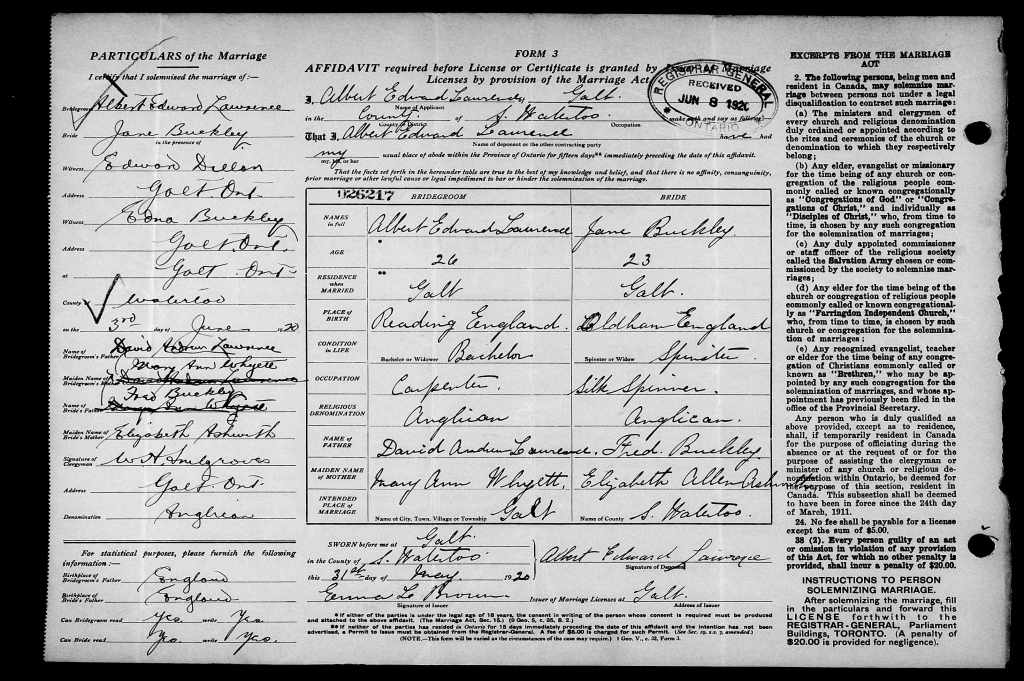 PARTICULARS of the Marriage
I certify that I solemnised the marriage of :—
Bridegroom Albert Edward Lawrence
Bride Jane Buckley
in the presence of
Witness Edwan Dillon
Address Galt Ont.
Witness Edna Buckley
Address Galt Ont.
at Galt Ont
County Waterloo
on the 3rd day of June 1920
Name of Bridegroom's Father David Andrew Lawrence
Mary Ann Whyett
Maiden Name of Bridegroom's Mother
Fred Buckley
Name of Bride's Father
Maiden Name of Bride's Mother Elizabeth Ashworth
Signature of Clergyman W. H. Snelgrove
Address Galt Ont.
Denomination Anglican
For statistical purposes, please furnish the following
information :—
Birthplace of Bridegroom's Father England
Birthplace of Bride's Father England
Can Bridegroom read Yes write Yes
Can Bride read Yes write Yes.
FORM 3
AFFIDAVIT required before License or Certificate is granted by Marriage
Licenses by provision of the Marriage Act
REGISTRAR GENERAL
RECEIVED
JUN 8 1920
ONTARIO
I, Albert Edward Lawrence, Galt.
Name of Applicant
in the County of S. Waterloo. make oath and say as follows:
County or District
Occupation.
That I Albert Edward Laurence have had
Name of deponent or the other contracting party
my usual place of abode within the Province of Ontario for fifteen days** immediately preceding the date of this affidavit.
my, his or her
That the facts set forth in the hereunder table are true to the best of my knowledge and belief, and that there is no affinity, consanguinity,
prior marriage or other lawful cause or legal impediment to bar or hinder the solemnization of the marriage.
026217 BRIDEGROOM BRIDE
NAMES in full Albert Edward Laurence Jane Buckley
AGE 26 23
RESIDENCE when MARRIED Galt Galt.
PLACE OF BIRTH Reading England. Oldham England
CONDITION in LIFE Bachelor or Widower Bachelor Spinster or Widow Spinster
OCCUPATION Carpenter. Silk Spinner
RELIGIOUS DENOMINATION Anglican Anglican.
NAME OF FATHER David Andrew Laurence. Fred. Buckley.
MAIDEN NAME OF MOTHER Mary Ann Whyett, Elizabeth Allen Ashworth
INTENDED PLACE OF MARRIAGE Name of City, Town, Village or Township Galt Name of County S. Waterloo.
SWORN before me at Galt.
in the County of S. Waterloo.
this 31st day of May 1920
Albert Edward Lawrence
Signature of Deponent
Emma Le Brown Issuer of Marriage Licenses at Galt.
Signature of Issuer Address of Issuer
*If either of the parties is under the legal age of 18 years, the consent in writing of the person whose consent is required must be produced
and attached to the above affidavit. (The Marriage Act, Sec. 15.) (9 Geo. 5, c. 35, S. 2.)
**If neither of the parties has resided in Ontario for 15 days immediately preceding the date of this affidavit and the intention has not been
advertised, a Permit to Issue must be obtained from the Registrar-General. A fee of $5.00 is charged for such Permit.
(NOTE.—This form will be varied as the circumstances of the case may require.) 1 Geo. V., c. 32, Form 3.
EXCERPTS FROM THE MARRIAGE
ACT
2. The following persons, being men and
resident in Canada, may solemnize mar-
riage between persons not under a legal
disqualification to contract such marriage:
(a) The ministers and clergymen of
every church and religious denomination
duly ordained or appointed according to
the rites and ceremonies of the church or
denomination to which they respectively
belong;
(b) Any elder, evangelist or missionary
for the time being of any church or con-
gregation of the religious people com-
monly called or known congregationally
as "Congregations of God" or "Congre-
gations of Christ," and individually as
"Disciples of Christ," who, from time to
time, is chosen by any such congregation
for the solemnization of marriages;
(c) Any duly appointed commissioner
or staff officer of the religious society
called the Salvation Army chosen or com-
missioned by the society to solemnize mar-
riages;
(d) Any elder for the time being of the
church or congregation of religious people
commonly called or known congregational-
ly as "Farringdon Independent Church,"
who, from time to time, is chosen by such
church or congregation for the solemniza-
tion of marriage;
(e) Any recognized evangelist, teacher
or elder for the time being of any congre-
gation of Christians commonly called or
known as "Brethren," who may be ap-
pointed by any such congregation for the
solemnization of marriages, and whose
appointment has previously been filed in the
office of the Provincial Secretary.
Any person who is duly qualified as
above provided, except as to residence,
shall, if temporarily resident in Canada
for the purpose of officiating during the
absence or at the request of or for the
purpose of assisting the clergyman or
minister of any church or religious de-
nomination within Ontario, be deemed for
the purpose of this section, resident in
Canada. This subsection shall be deemed
to have been in force since the 24th day
of March, 1911.
24. No fee shall be payable for a license
except the sum of $5.00.
38 (2). Every person guilty of an act
or omission in violation of any provision
of this Act, for which no other penalty is
provided, shall incur a penalty of $20.00.
INSTRUCTIONS TO PERSON
SOLEMNIZING MARRIAGE.
After solemnizing the marriage, fill
in the particulars and forward this
LICENSE forthwith to the
REGISTRAR-GENERAL, Parliament
Buildings, TORONTO. (A penalty of
$20.00 is provided for negligence).